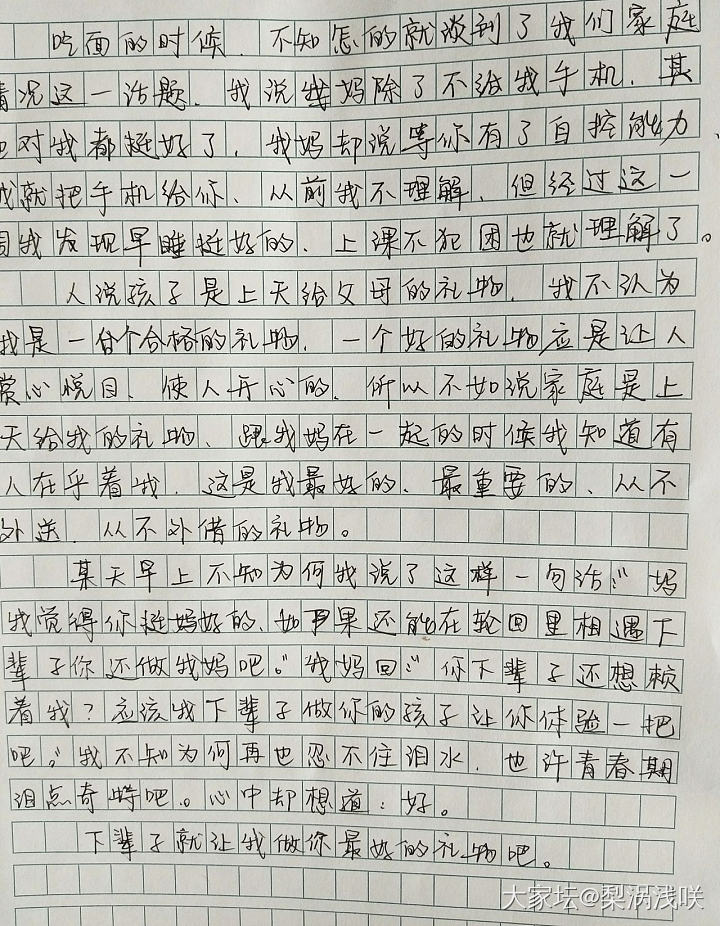 吃面的时候，不知怎的就谈到了我们家庭
情况这一话题，我说我妈除了不给我手机，其
他对我都挺好了，我妈却说等你有了自控能力
我就把手机给你、从前我不理解，但经过这一
周我发现早睡挺好的，上课不犯困也就理解了。
人说孩子是上天给父母的礼物，我不认为
我是一份个合格的礼物，一个好的礼物应是让人
赏心悦目，使人开心的，所以不如说家庭是上
天给我的礼物、跟我妈在一起的时候我知道有
人在乎着我，这是我最好的、最重要的、从不
外送，从不外借的礼物。
某天早上不知为何我说了这样一句话：“妈
我觉得你挺妈好的、如果还能在轮回里相遇下
辈子你还做我妈吧。”我妈回：“你下辈子还想赖
着我？应该我下辈子做你的孩子让你体验一把
吧。”我不知为何再也忍不住泪水，也许青春期
泪点奇特吧。心中却想道：好。
下辈子就让我做你最好的礼物吧。
大家坛@梨涡浅笑